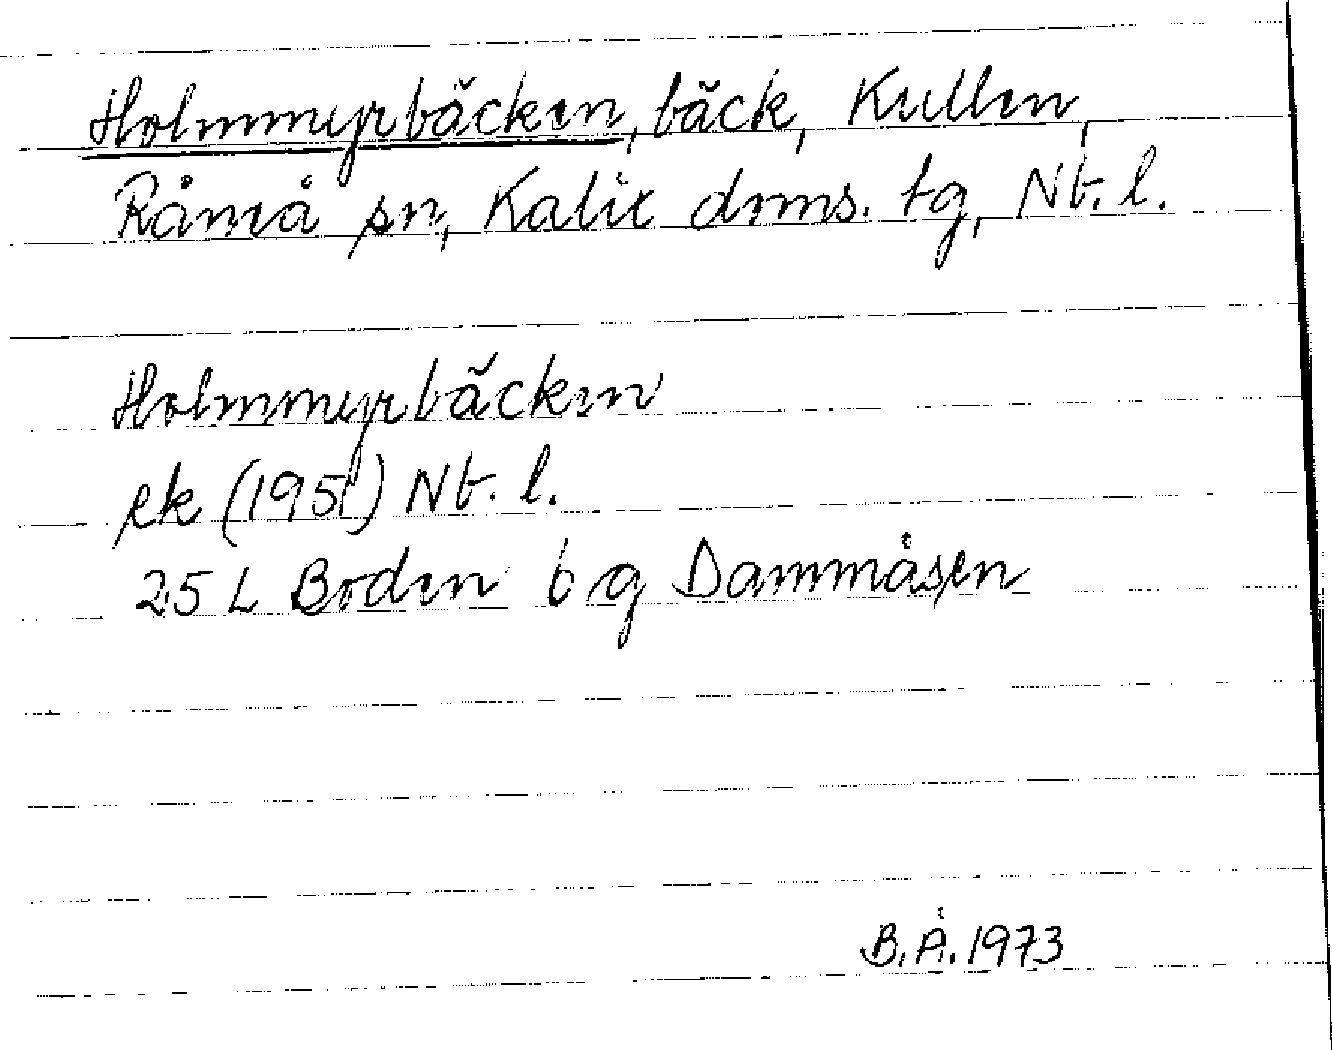 Holmmyrbäcken, bäck, Kullen,
Råneå sn, Kalix dms. tg, Nb. l.
Holmmyrbäcken
ek (1951) Nb. l.
25 L Boden 6 g Dammåsen
B.Å. 1973